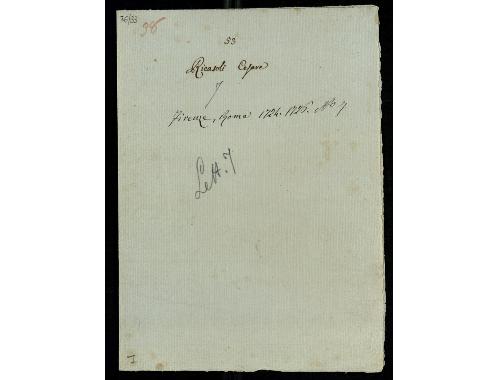 76/33
38
53
Ricasoli Cesare
7
Firenze, Roma 1724. 1725. No 7.
Lett. 7
I